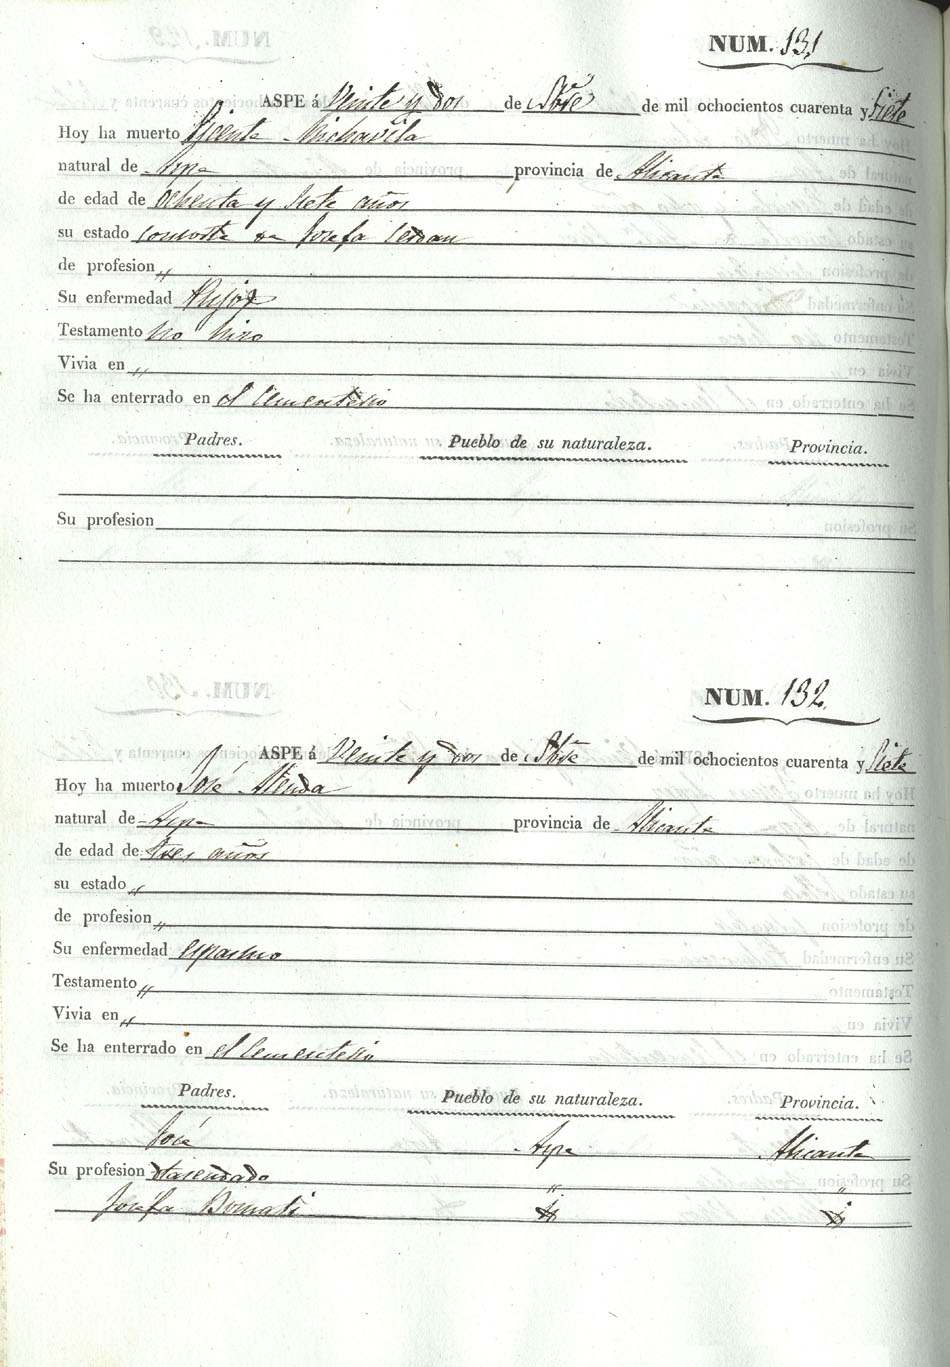 NUM. 131
ASPE á Veinte y dos de Sbre de mil ochocientos cuarenta y Siete
Hoy ha muerto Vicente Michavila
natural de Aspe provincia de Alicante
de edad de Ochenta y Siete años
su estado consorte de Josefa Cerdan
de profesion "
Su enfermedad
Testamento no hizo
Vivia en "
Se ha enterrado en el Cementerio
Padres. Pueblo de su naturaleza. Provincia.
Su profesion
NUM. 132
ASPE á Veinte y dos de Sbre de mil ochocientos cuarenta y Siete
Hoy ha muerto José Atenda
natural de Aspe provincia de Alicante
de edad de tres años
su estado "
de profesion "
Su enfermedad espasmo
Testamento "
Vivia en "
Se ha enterrado en el Cementerio
Padres. Pueblo de su naturaleza. Provincia.
José Aspe Alicante
Su profesion Hasendado " "
Josefa Bonmati